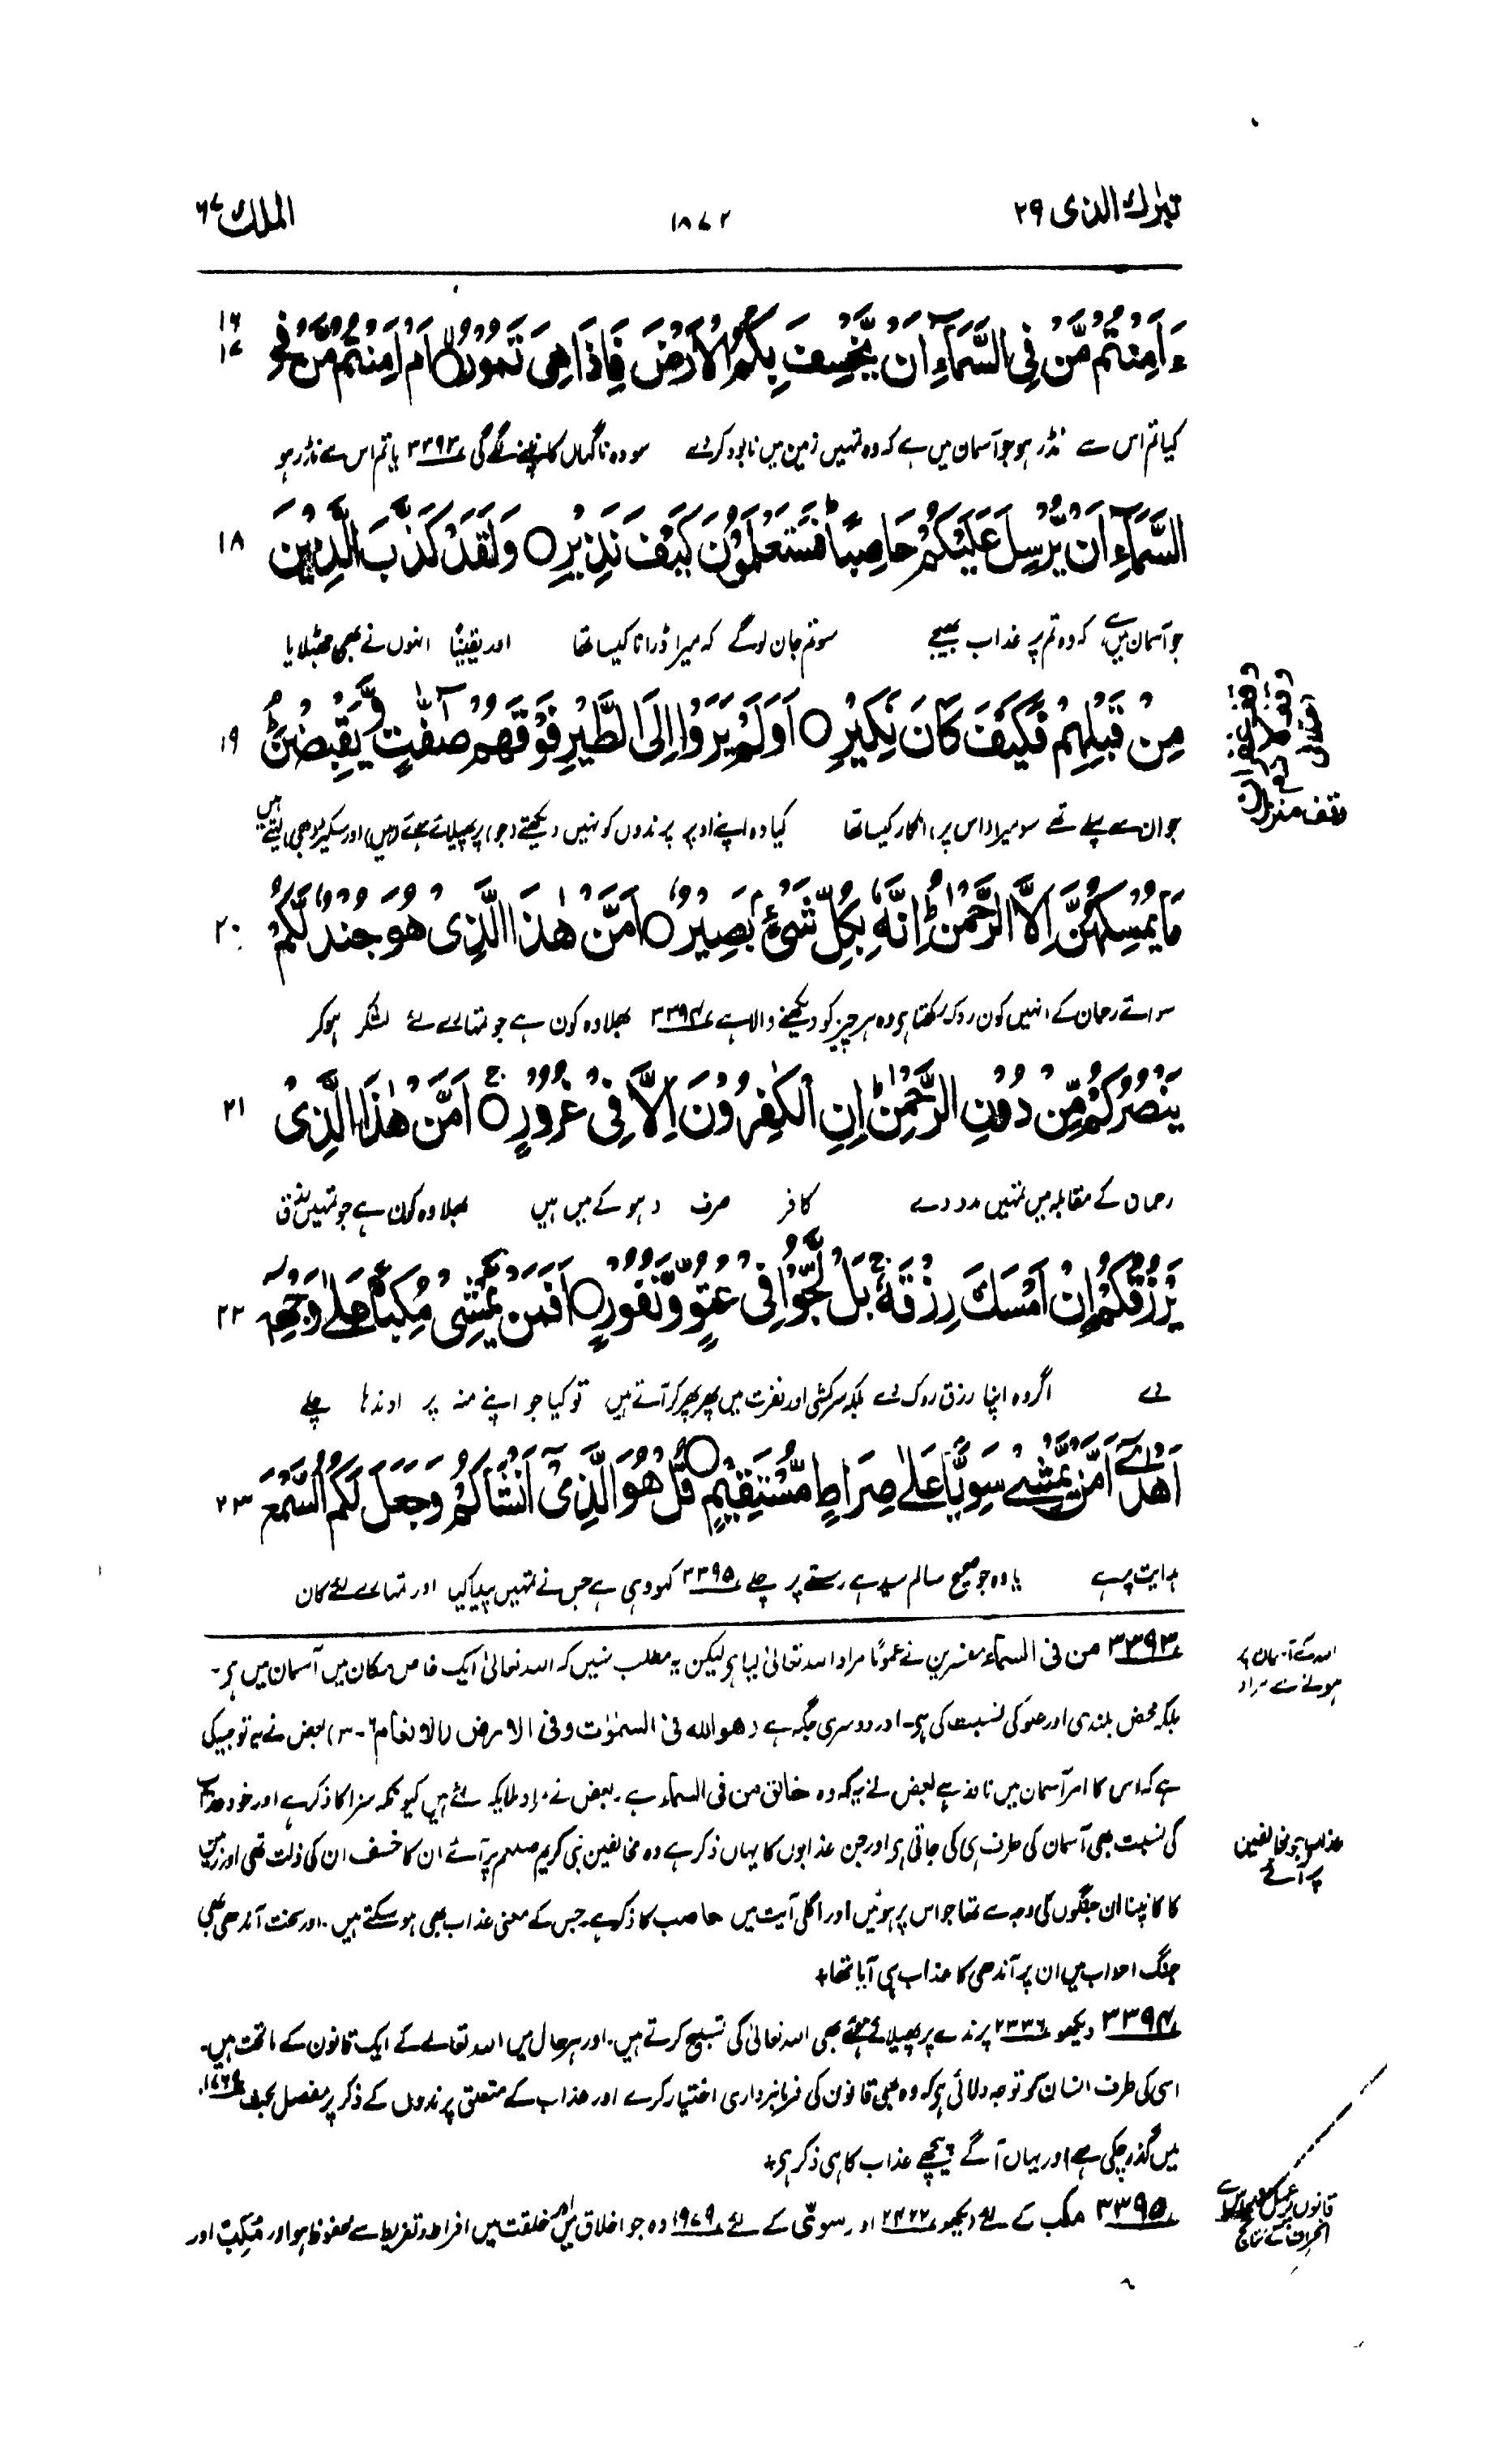 تبٰرك الذی ۲۹
۱۸۷۲
الملك ۶۷
ءَاَمِنْتُمْ مَّنْ فِی السَّمَآءِ اَنْ یَّخْسِفَ بِكُمُ الْاَرْضَ فَاِذَا هِیَ تَمُوْرُ ○ اَمْ اَمِنْتُمْ مَّنْ فِی
۱۶
۱۷
کیا تم اس سے نڈر ہو جو آسمان میں ہے کہ وہ تمہیں زمین میں نابود کر دے سو وہ ناگہاں کانپنے لگے گی ۳۳۹۳ یا تم اس سے نڈر ہو
السَّمَآءِ اَنْ یُّرْسِلَ عَلَیْكُمْ حَاصِبًا ؕ فَسَتَعْلَمُوْنَ كَیْفَ نَذِیْرِ ○ وَلَقَدْ كَذَّبَ الَّذِیْنَ
۱۸
جو آسمان میں ہے، کہ وہ تم پر عذاب بھیجے سو تم جان لوگے کہ میرا ڈرانا کیسا تھا اور یقیناً انہوں نے بھی جھٹلایا
مِنْ قَبْلِهِمْ فَكَیْفَ كَانَ نَكِیْرِ ○ اَوَلَمْ یَرَوْا اِلَی الطَّیْرِ فَوْقَهُمْ صٰٓفّٰتٍ وَّیَقْبِضْنَ ؕ
۱۹
جو ان سے پہلے تھے سو میرا (اس پر) انکار کیسا تھا کیا وہ اپنے اوپر پرندوں کو نہیں دیکھتے (جو) پر پھیلائے ہوئے (ہیں) اور سکیڑ بھی لیتے ہیں
مَا یُمْسِكُهُنَّ اِلَّا الرَّحْمٰنُ ؕ اِنَّهٗ بِكُلِّ شَیْءٍۭ بَصِیْرٌ ○ اَمَّنْ هٰذَا الَّذِیْ هُوَ جُنْدٌ لَّكُمْ
۲۰
سوائے رحمان کے انہیں کون روک رکھتا ہی وہ ہر چیز کو دیکھنے والا ہے ۳۳۹۴ بھلا وہ کون ہے جو تمہارے لئے لشکر ہو کر
یَنْصُرُكُمْ مِّنْ دُوْنِ الرَّحْمٰنِ ؕ اِنِ الْكٰفِرُوْنَ اِلَّا فِیْ غُرُوْرٍ ○ اَمَّنْ هٰذَا الَّذِیْ
۲۱
رحمان کے مقابلہ میں تمہیں مدد دے کافر صرف دہوکے میں ہیں بھلا وہ کون ہے جو تمہیں رزق
یَرْزُقُكُمْ اِنْ اَمْسَكَ رِزْقَهٗ ۚ بَلْ لَّجُّوْا فِیْ عُتُوٍّ وَّنُفُوْرٍ ○ اَفَمَنْ یَّمْشِیْ مُكِبًّا عَلٰی وَجْهِهٖ
۲۲
دے اگر وہ اپنا رزق روک لے بلکہ سرکشی اور نفرت میں پھر پھر کر آتے ہیں تو کیا جو اپنے منہ پر اوندھا چلے
اَهْدٰۤی اَمَّنْ یَّمْشِیْ سَوِیًّا عَلٰی صِرَاطٍ مُّسْتَقِیْمٍ ○ قُلْ هُوَ الَّذِیْۤ اَنْشَاَكُمْ وَجَعَلَ لَكُمُ السَّمْعَ
۲۳
ہدایت پر ہے یا وہ جو صحیح سالم سیدہے رستے پر چلے ۳۳۹۵ کہو وہی ہے جس نے تمہیں پیدا کیا اور تمہارے لئے کان
۳۳۹۳ من فی السماء مفسرین نے عموماً مراد اللہ تعالیٰ لیا ہی لیکن یہ مطلب نہیں کہ اللہ تعالیٰ ایک خاص مکان میں آسمان میں ہی۔
بلکہ محض بلندی اور علو کی نسبت کی ہی۔ اور دوسری جگہ ہے وهو الله فی السمٰوٰت وفی الارض (الانعام ۶-۳) بعض نے یہ توجیہ کی
ہے کہ اس کا امر آسمان میں نافذ ہے بعض نے یہ کہ وہ خالق من فی السماء ہے۔ بعض نے مراد ملائکہ لئے ہیں کیونکہ سزا کا ذکر ہے اور خود عذاب
کی نسبت بھی آسمان کی طرف ہی کی جاتی ہی اور جن عذابوں کا یہاں ذکر ہے وہ مخالفین نبی کریم صلعم پر آئے ان کا خسف ان کی ذلت تھی اور زمین
کا کانپنا ان جنگوں کی وجہ سے تھا جو اس پر ہوئیں اور اگلی آیت میں حاصب کا ذکر ہے۔ جس کے معنی عذاب بھی ہو سکتے ہیں۔ اور سخت آندھی بھی
جنگ احزاب میں ان پر آندھی کا عذاب ہی آیا تھا+
۳۳۹۴ دیکھو ۲۳۳۶ پرندے پر پھیلائے ہوئے بھی اللہ تعالیٰ کی تسبیح کرتے ہیں۔ اور ہر حال میں اللہ تعالےٰ کے ایک قانون کے ماتحت ہیں۔
اسی کی طرف انسان کو توجہ دلائی ہی کہ وہ بھی قانون کی فرمانبرداری اختیار کرے اور عذاب کے متعلق پرندوں کے ذکر پر مفصل بحث
میں گذر چکی ہے اور یہاں آگے پیچھے عذاب کا ہی ذکر ہی+
۳۳۹۵ مکب کے لئے دیکھو ۲۴۲۲ اور سوی کے لئے ۱۹۷۹ وہ جو اخلاق میں اور خلقت میں افراط و تفریط سے محفوظ ہو اور مُکِبّ اور
وقف غفران
وقف منزل
اللہ کے آسمان پر
ہونے سے مراد
عذاب جو مخالفین
پر آئے